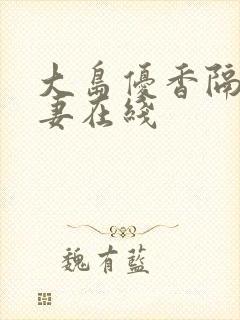 大島優香隔
妻在綫
魏有藍